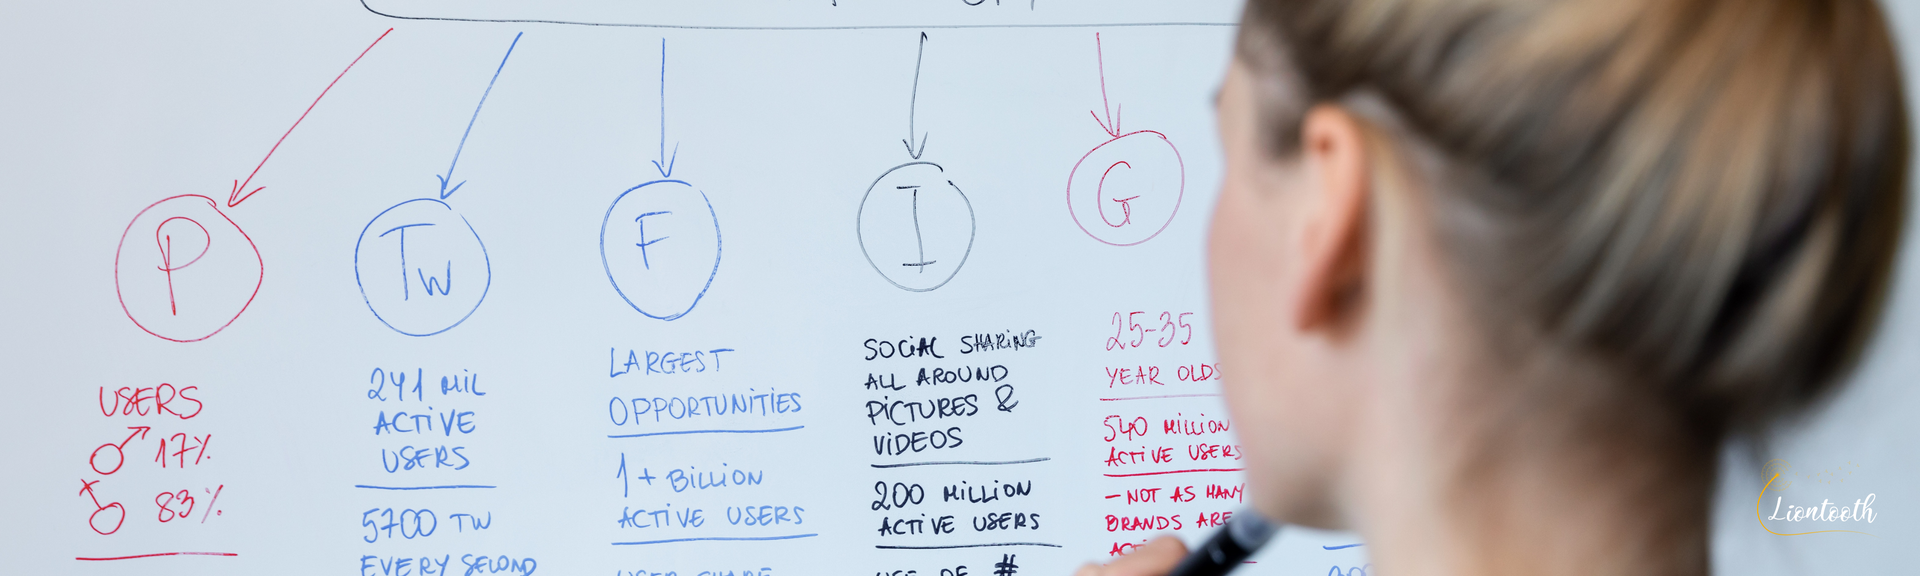 P
USERS
♂ 17%
83%
Tw
241 MIL
ACTIVE
USERS
5700 TW
EVERY SECOND
F
LARGEST
OPPORTUNITIES
1+ BILLION
ACTIVE USERS
USER SHARE
I
SOCIAL SHARING
ALL AROUND
PICTURES &
VIDEOS
200 MILLION
ACTIVE USERS
USE OF #
G
25-35
YEAR OLDS
540 MILLION
ACTIVE USERS
- NOT AS MANY
BRANDS ARE
Liontooth